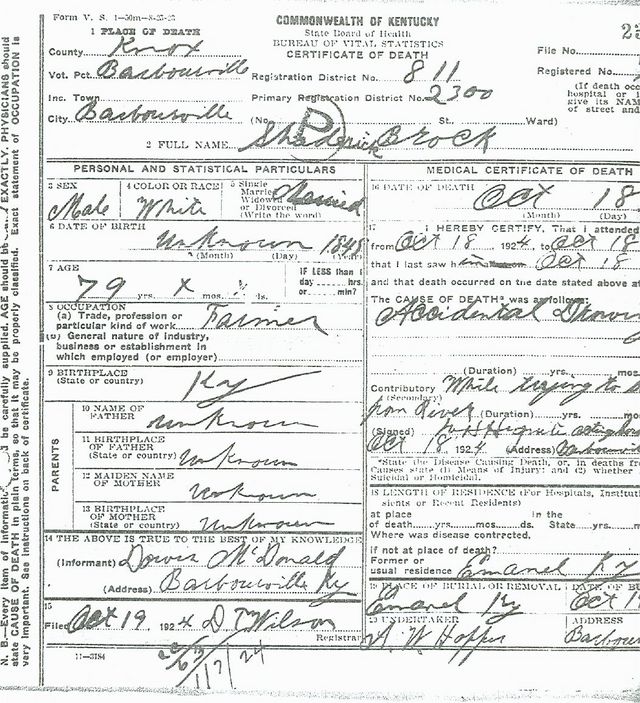 Form V. S. 1-50m-8-25-23
COMMONWEALTH OF KENTUCKY
State Board of Health
BUREAU OF VITAL STATISTICS
CERTIFICATE OF DEATH
1 PLACE OF DEATH
County Knox
Vot. Pct. Barbourville
Inc. Town
City Barbourville
Registration District No. 811
Primary Registration District No. 2300
(No. St. Ward)
File No.
Registered No.
(If death occ
hospital or i
give its NAM
of street and
2 FULL NAME Shaderick Brock
PERSONAL AND STATISTICAL PARTICULARS
3 SEX
Male
4 COLOR OR RACE
White
5 Single
Married
Widowed
or Divorced
(Write the word)
Married
6 DATE OF BIRTH
Unknown
(Month) (Day) (Year)
7 AGE
79 yrs. x mos. ds.
IF LESS than 1
day hrs.
or min?
8 OCCUPATION
(a) Trade, profession or
particular kind of work Farmer
(b) General nature of industry,
business or establishment in
which employed (or employer)
9 BIRTHPLACE
(State or country) Ky
PARENTS
10 NAME OF
FATHER Unknown
11 BIRTHPLACE
OF FATHER
(State or country) Unknown
12 MAIDEN NAME
OF MOTHER Unknown
13 BIRTHPLACE
OF MOTHER
(State or country) Unknown
14 THE ABOVE IS TRUE TO THE BEST OF MY KNOWLEDGE
(Informant) McDonald
(Address) Barbourville Ky
15
Filed Oct 19 1924 D T Wilson
Registrar
11-3184
MEDICAL CERTIFICATE OF DEATH
16 DATE OF DEATH
Oct 18
(Month) (Day)
17 I HEREBY CERTIFY, That I attended
from Oct 18 1924, to Oct 18
that I last saw h Oct 18
and that death occurred on the date stated above at
The CAUSE OF DEATH* was as follows:
Accidental
(Duration) yrs. mo
Contributory While trying to
(Secondary)
from River (Duration) yrs. mos.
(Signed)
Oct 18 1924 (Address) Barbourv
*State the Disease Causing Death, or, in deaths fro
Causes state (1) Means of Injury; and (2) whether
Suicidal or Homicidal.
18 LENGTH OF RESIDENCE (For Hospitals, Institut
sients or Recent Residents)
at place In the
of death yrs. mos. ds. State yrs.
Where was disease contracted.
If not at place of death?
Former or
usual residence Emanel Ky
19 PLACE OF BURIAL OR REMOVAL
Emanel Ky
DATE OF BU
Oct 1
20 UNDERTAKER
ADDRESS
Barbou
N. B.—Every item of informati be carefully supplied. AGE should be EXACTLY. PHYSICIANS should
state CAUSE OF DEATH in plain terms, so that it may be properly classified. Exact statement of OCCUPATION is
very important. See instructions on back of certificate.